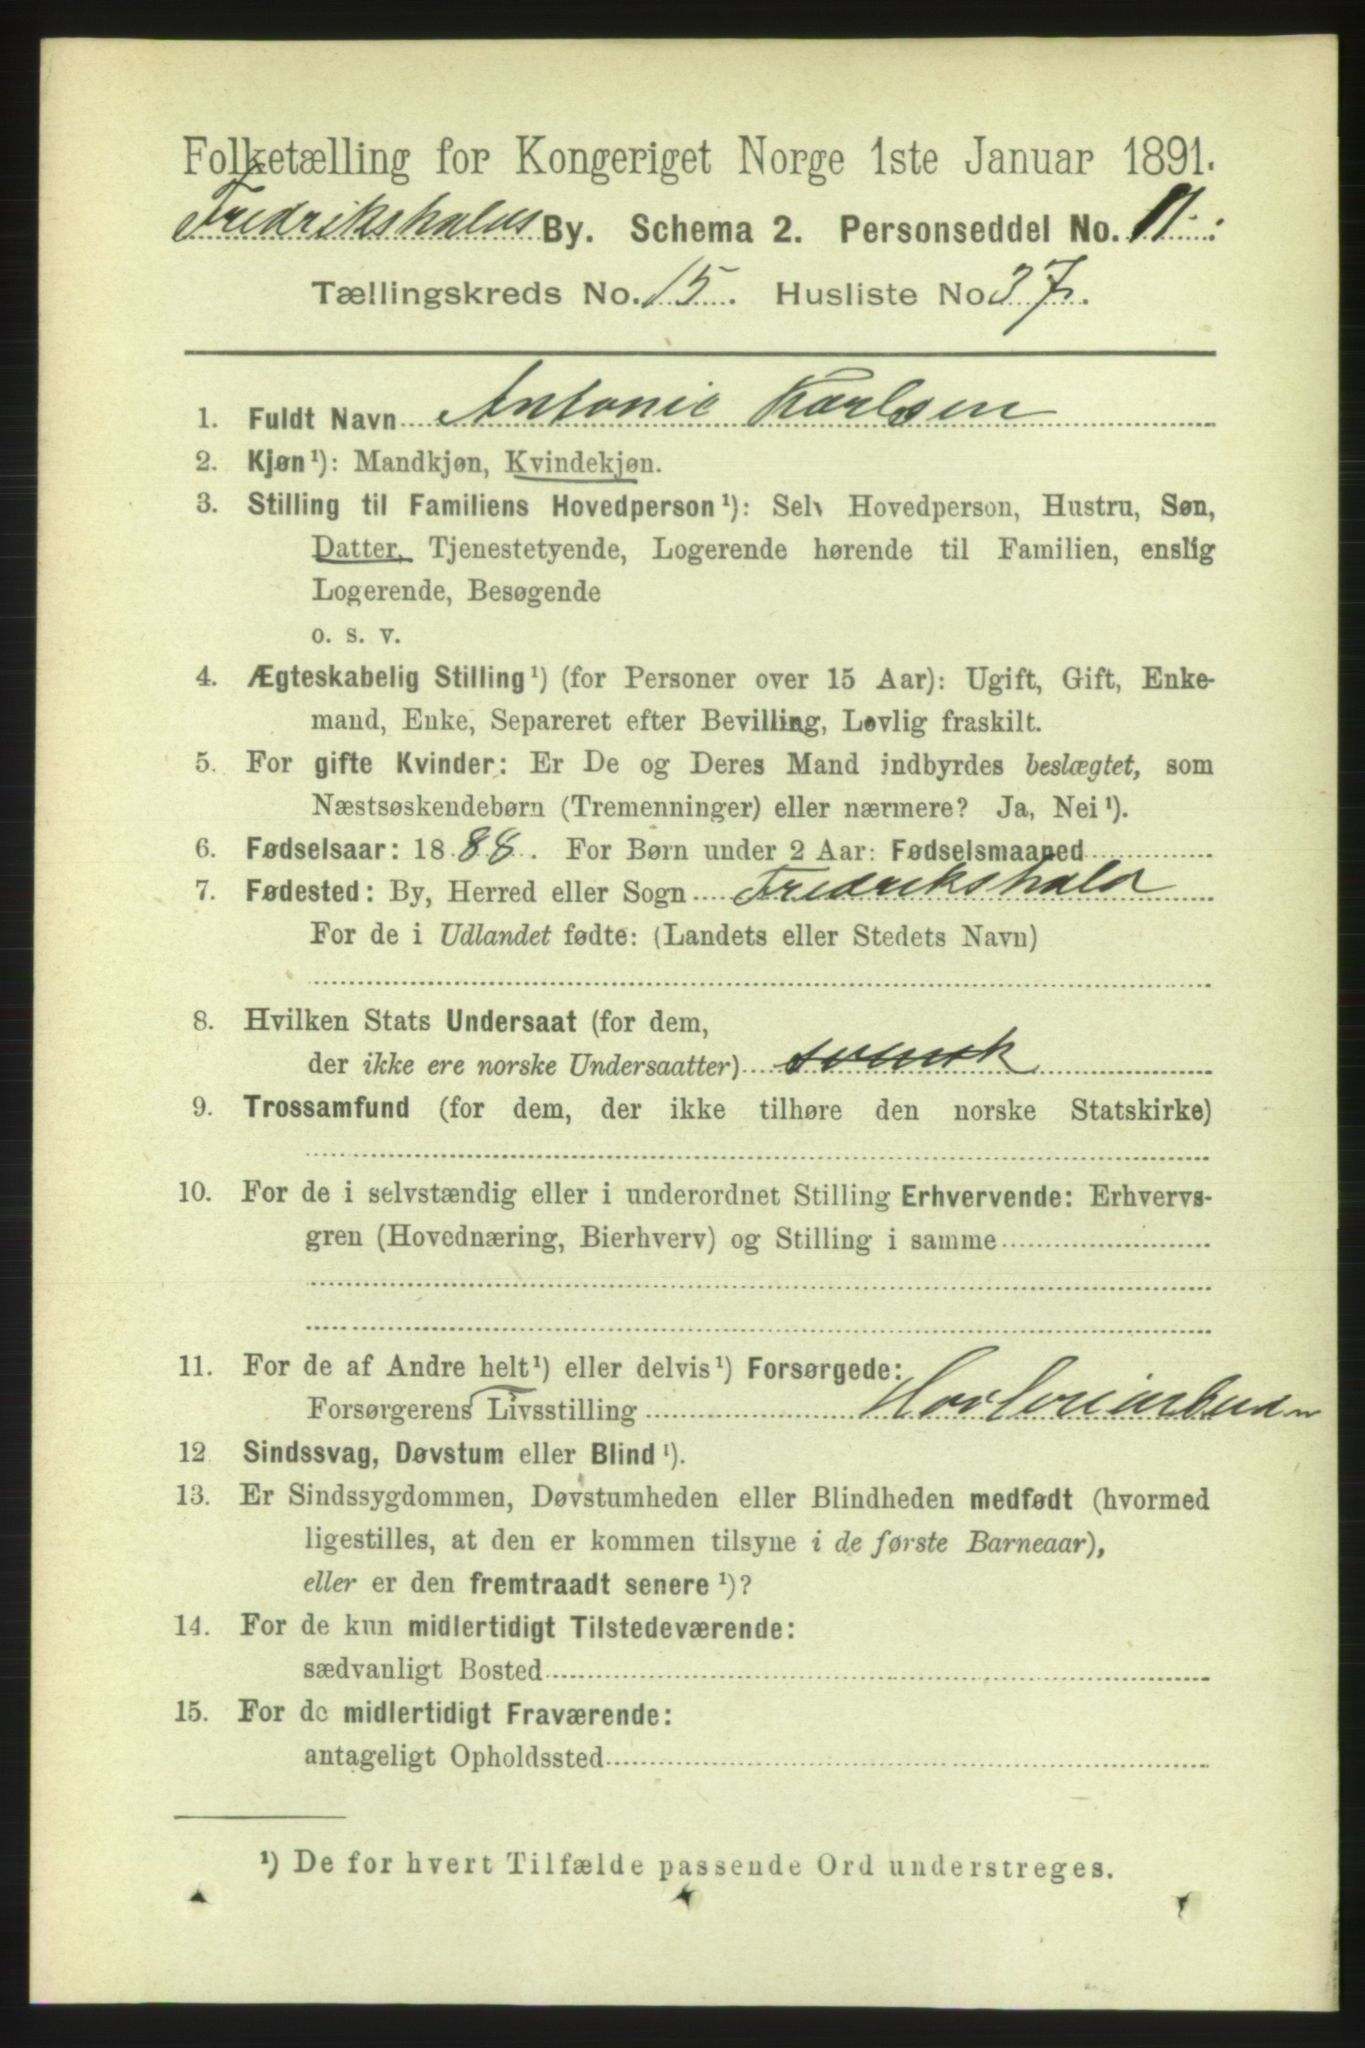 Folketælling for Kongeriget Norge 1ste Januar 1891.
Fredrikshalds By. Schema 2. Personseddel No. 11.
Tællingskreds No. 15. Husliste No 37.
1. Fuldt Navn Antonie Karlsen
2. Kjøn¹): Mandkjøn, Kvindekjøn.
3. Stilling til Familiens Hovedperson¹): Selv Hovedperson, Hustru, Søn,
Datter, Tjenestetyende, Logerende hørende til Familien, enslig
Logerende, Besøgende
o. s. v.
4. Ægteskabelig Stilling¹) (for Personer over 15 Aar): Ugift, Gift, Enke-
mand, Enke, Separeret efter Bevilling, Lovlig fraskilt.
5. For gifte Kvinder: Er De og Deres Mand indbyrdes beslægtet, som
Næstsøskendebørn (Tremenninger) eller nærmere? Ja, Nei¹).
6. Fødselsaar: 1888. For Børn under 2 Aar: Fødselsmaaned
7. Fødested: By, Herred eller Sogn Fredrikshald
For de i Udlandet fødte: (Landets eller Stedets Navn)
8. Hvilken Stats Undersaat (for dem,
der ikke ere norske Undersaatter) svensk
9. Trossamfund (for dem, der ikke tilhøre den norske Statskirke)
10. For de i selvstændig eller i underordnet Stilling Erhvervende: Erhvervs-
gren (Hovednæring, Bierhverv) og Stilling i samme
11. For de af Andre helt¹) eller delvis¹) Forsørgede:
Forsørgerens Livsstilling
12 Sindssvag, Døvstum eller Blind¹).
13. Er Sindssygdommen, Døvstumheden eller Blindheden medfødt (hvormed
ligestilles, at den er kommen tilsyne i de første Barneaar),
eller er den fremtraadt senere¹)?
14. For de kun midlertidigt Tilstedeværende:
sædvanligt Bosted
15. For de midlertidigt Fraværende:
antageligt Opholdssted
¹) De for hvert Tilfælde passende Ord understreges.